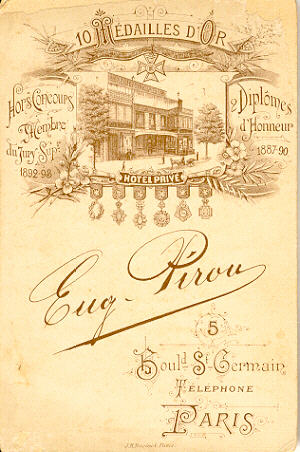 10 MÉDAILLES D'OR
Hors Concours
Membre
du Jury Supr
1892-93
2 Diplômes
d'Honneur
1887-90
HOTEL PRIVÉ
Eug. Pirou
5
Bould. St. Germain
TÉLÉPHONE
PARIS